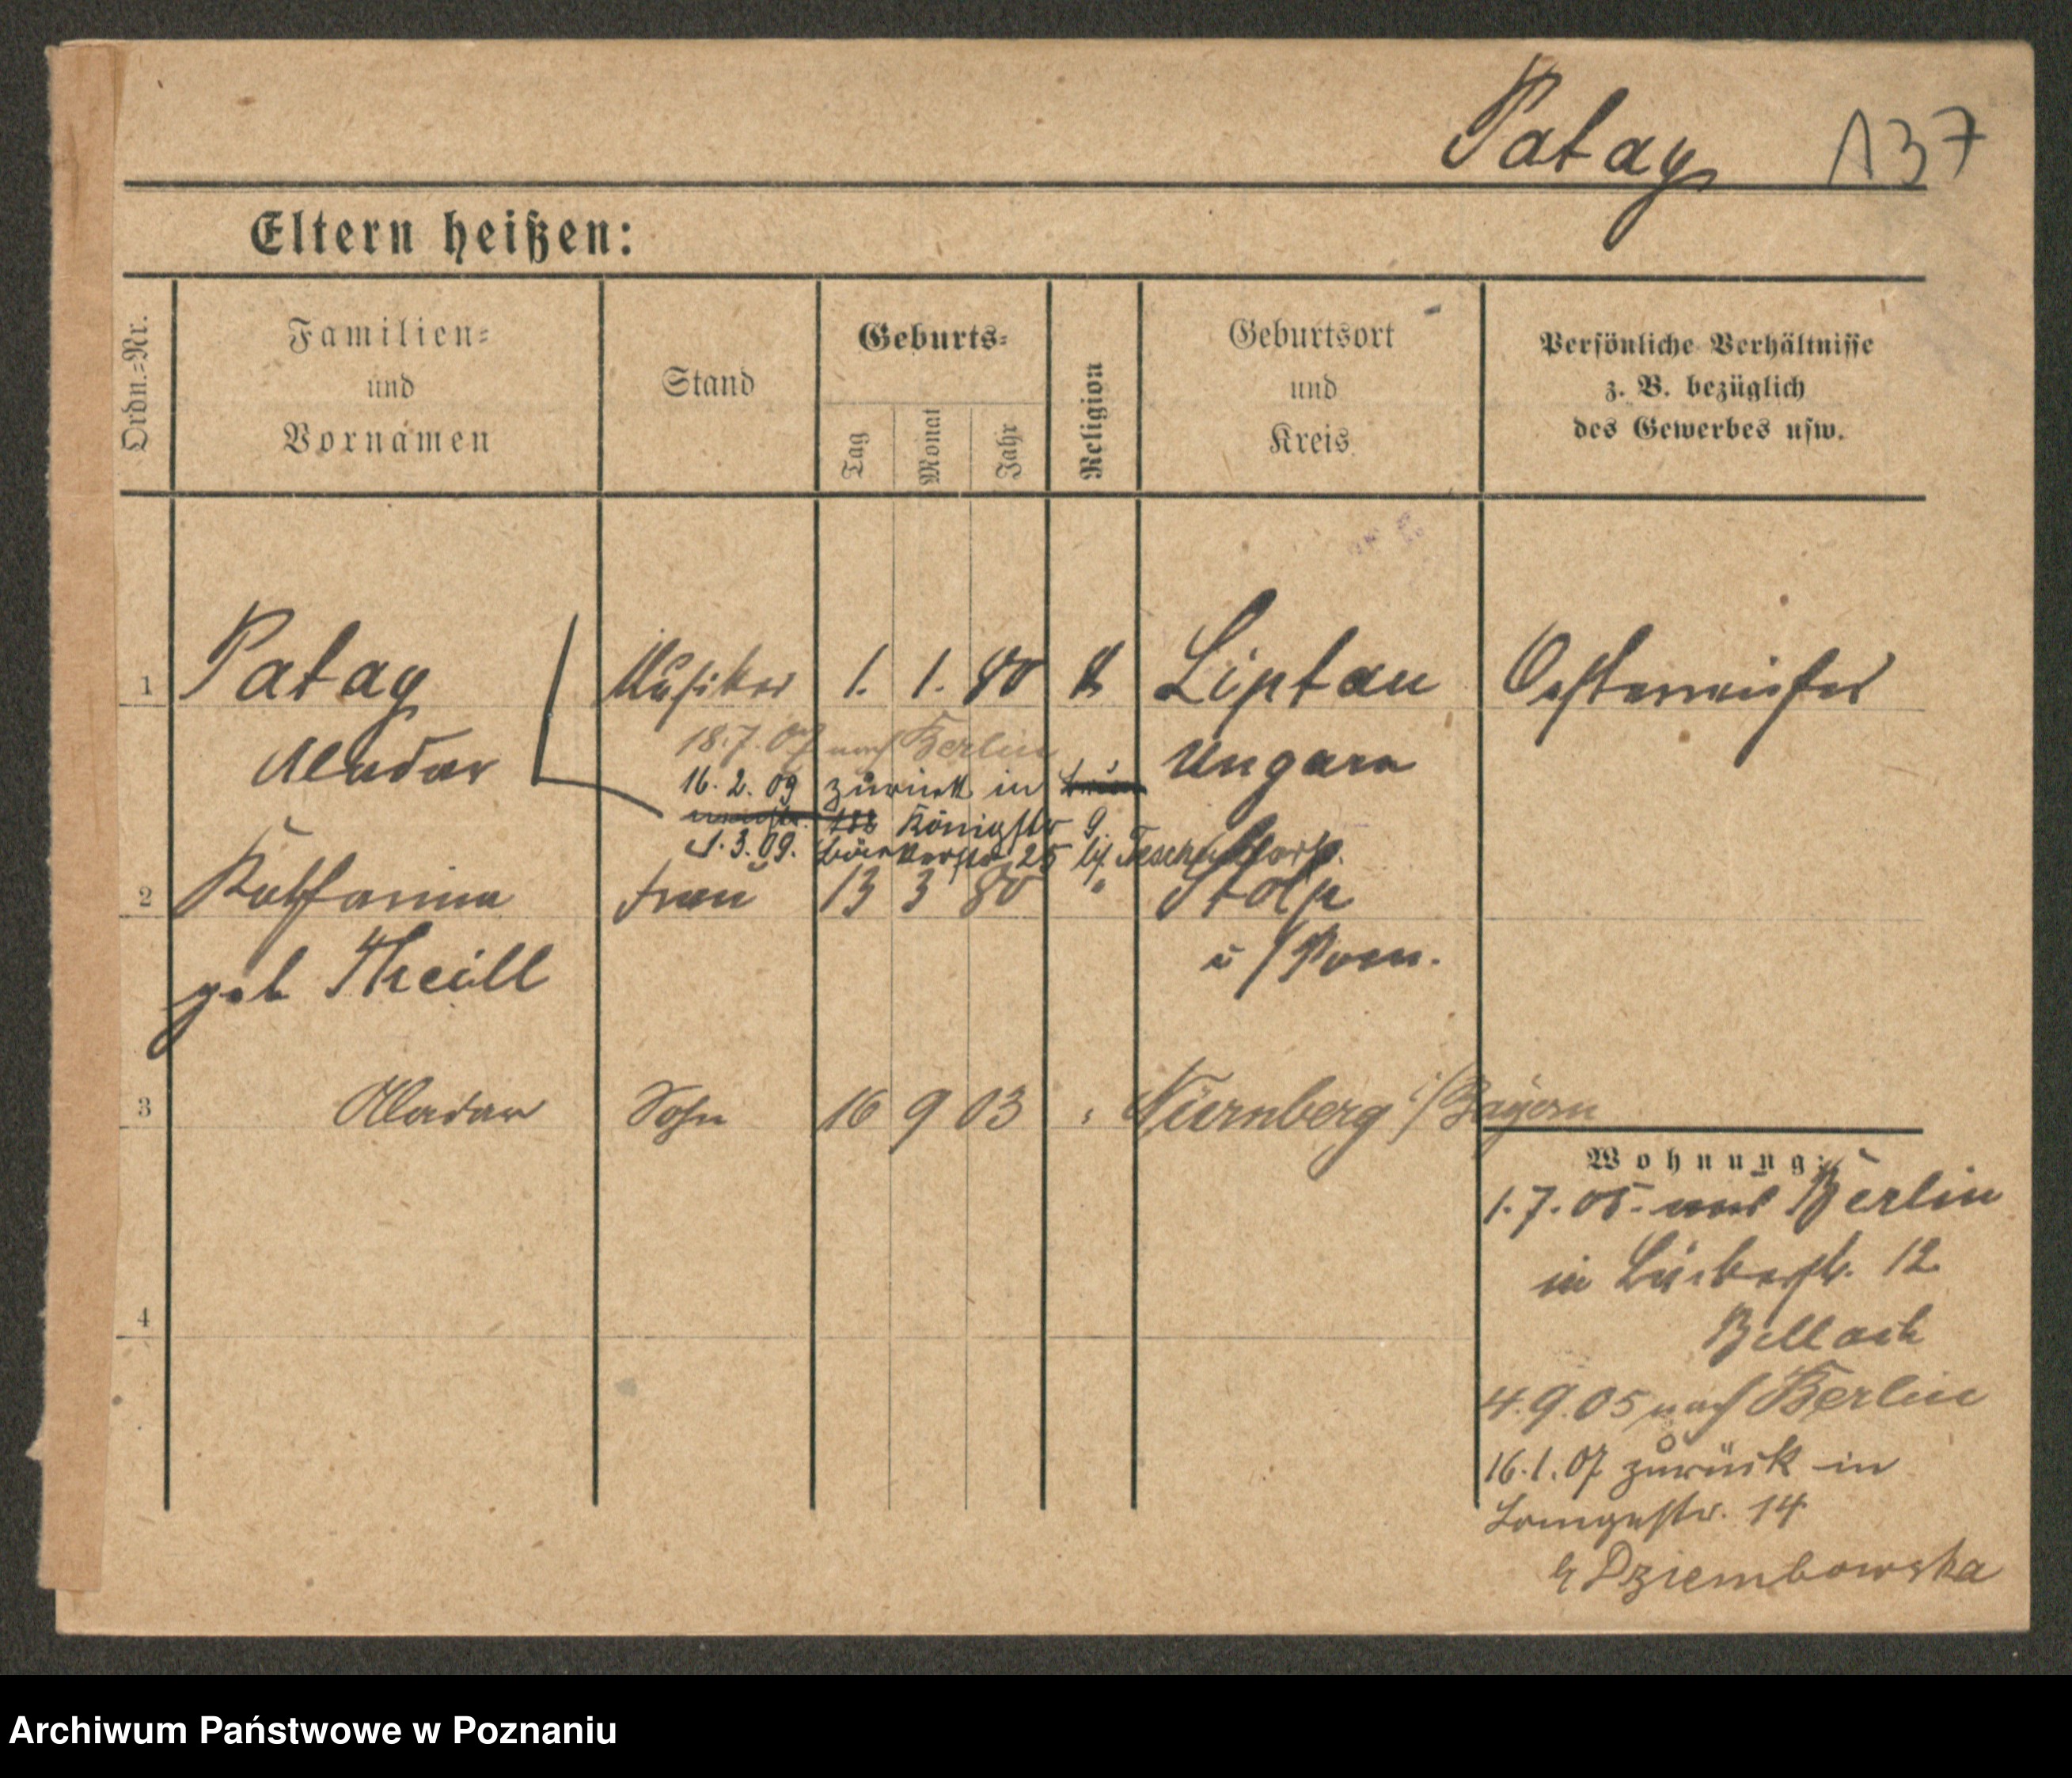 Patay 137
Eltern heißen:
Ordn.=Nr.
Familien=
und
Vornamen
Stand
Geburts=
Tag
Monat
Jahr
Religion
Geburtsort
und
Kreis
Persönliche Verhältnisse
z. B. bezüglich
des Gewerbes usw.
1 Patay Musiker 1. 1. 80 k Liptau Oesterreicher
Aladar Ungarn
18.7.07 nach Berlin
16.2.09 zurück in
Königstr 9.
1.3.09. 25 bei
2 Katharina Frau 13 3 80 " Stolp
geb Theill i/Pom.
3 Aladar Sohn 16 9 03 " Nürnberg i/Bayern
4
Wohnung:
1.7.05. aus Berlin
in Bäckerstr. 12
Bellach
4.9.05 nach Berlin
16.1.07 zurück in
Langestr. 14
b Dziembowska
Archiwum Państwowe w Poznaniu